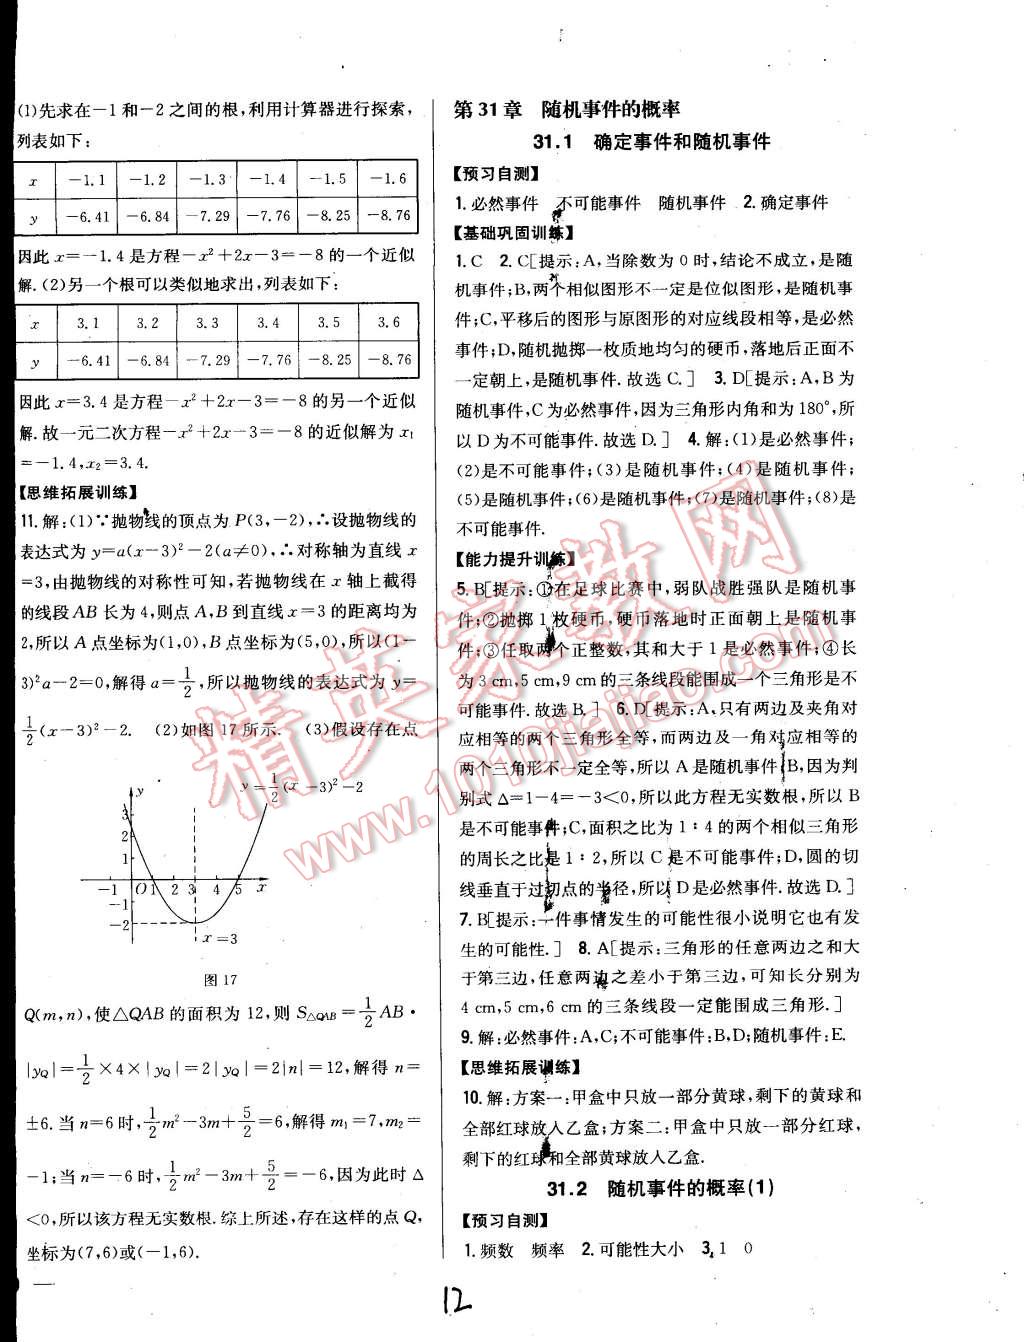 (1)先求在－1和－2之间的根,利用计算器进行探索,
列表如下:
x －1.1 －1.2 －1.3 －1.4 －1.5 －1.6
y －6.41 －6.84 －7.29 －7.76 －8.25 －8.76
因此 x=－1.4 是方程－x²＋2x－3=－8 的一个近似
解.(2)另一个根可以类似地求出,列表如下:
x 3.1 3.2 3.3 3.4 3.5 3.6
y －6.41 －6.84 －7.29 －7.76 －8.25 －8.76
因此 x=3.4 是方程－x²＋2x－3=－8 的另一个近似
解.故一元二次方程－x²＋2x－3=－8 的近似解为 x₁
=－1.4,x₂=3.4.
【思维拓展训练】
11.解:(1)∵抛物线的顶点为 P(3,－2),∴设抛物线的
表达式为 y=a(x－3)²－2(a≠0),∴对称轴为直线 x
=3,由抛物线的对称性可知,若抛物线在 x 轴上截得
的线段 AB 长为 4,则点 A,B 到直线 x=3 的距离均为
2,所以 A 点坐标为(1,0),B 点坐标为(5,0),所以(1－
3)²a－2=0,解得 a=1/2,所以抛物线的表达式为 y=
1/2(x－3)²－2. (2)如图 17 所示. (3)假设存在点
y
y=1/2(x－3)²－2
3
2
1
－1 O 1 2 3 4 5 x
－1
－2
x=3
图 17
Q(m,n),使△QAB 的面积为 12,则 S△QAB=1/2AB·
|yQ|=1/2×4×|yQ|=2|yQ|=2|n|=12,解得 n=
±6.当 n=6 时,1/2m²－3m＋5/2=6,解得 m₁=7,m₂=
－1;当 n=－6 时,1/2m²－3m＋5/2=－6,因为此时 Δ
<0,所以该方程无实数根.综上所述,存在这样的点 Q,
坐标为(7,6)或(－1,6).
第 31 章 随机事件的概率
31.1 确定事件和随机事件
【预习自测】
1.必然事件 不可能事件 随机事件 2.确定事件
【基础巩固训练】
1.C 2.C[提示:A,当除数为 0 时,结论不成立,是随
机事件;B,两个相似图形不一定是位似图形,是随机事
件;C,平移后的图形与原图形的对应线段相等,是必然
事件;D,随机抛掷一枚质地均匀的硬币,落地后正面不
一定朝上,是随机事件.故选 C.] 3.D[提示:A,B 为
随机事件,C 为必然事件,因为三角形内角和为 180°,所
以 D 为不可能事件.故选 D.] 4.解:(1)是必然事件;
(2)是不可能事件;(3)是随机事件;(4)是随机事件;
(5)是随机事件;(6)是随机事件;(7)是随机事件;(8)是
不可能事件.
【能力提升训练】
5.B[提示:①在足球比赛中,弱队战胜强队是随机事
件;②抛掷 1 枚硬币,硬币落地时正面朝上是随机事
件;③任取两个正整数,其和大于 1 是必然事件;④长
为 3 cm,5 cm,9 cm 的三条线段能围成一个三角形是不
可能事件.故选 B.] 6.D[提示:A,只有两边及夹角对
应相等的两个三角形全等,而两边及一角对应相等的
两个三角形不一定全等,所以 A 是随机事件;B,因为判
别式 Δ=1－4=－3<0,所以此方程无实数根,所以 B
是不可能事件;C,面积之比为 1∶4 的两个相似三角形
的周长之比是 1∶2,所以 C 是不可能事件;D,圆的切
线垂直于过切点的半径,所以 D 是必然事件.故选 D.]
7.B[提示:一件事情发生的可能性很小说明它也有发
生的可能性.] 8.A[提示:三角形的任意两边之和大
于第三边,任意两边之差小于第三边,可知长分别为
4 cm,5 cm,6 cm 的三条线段一定能围成三角形.]
9.解:必然事件:A,C;不可能事件:B,D;随机事件:E.
【思维拓展训练】
10.解:方案一:甲盒中只放一部分黄球,剩下的黄球和
全部红球放入乙盒;方案二:甲盒中只放一部分红球,
剩下的红球和全部黄球放入乙盒.
31.2 随机事件的概率(1)
【预习自测】
1.频数 频率 2.可能性大小 3.1 0
12
精英家教网
www.1010jiajiao.com